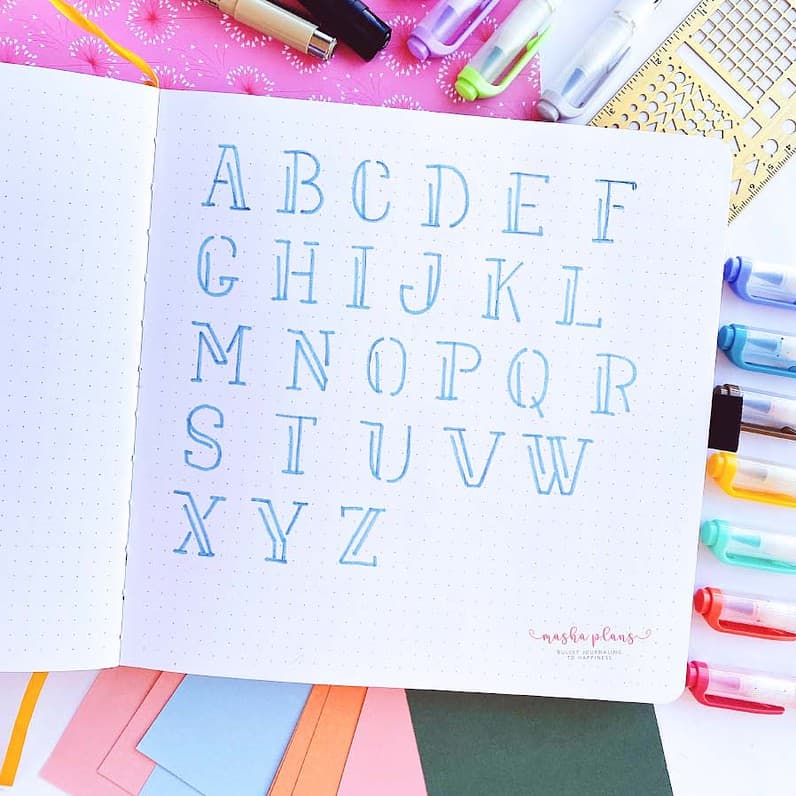 A B C D E F
G H I J K L
M N O P Q R
S T U V W
X Y Z
masha plans
BULLET JOURNALING
TO HAPPINESS